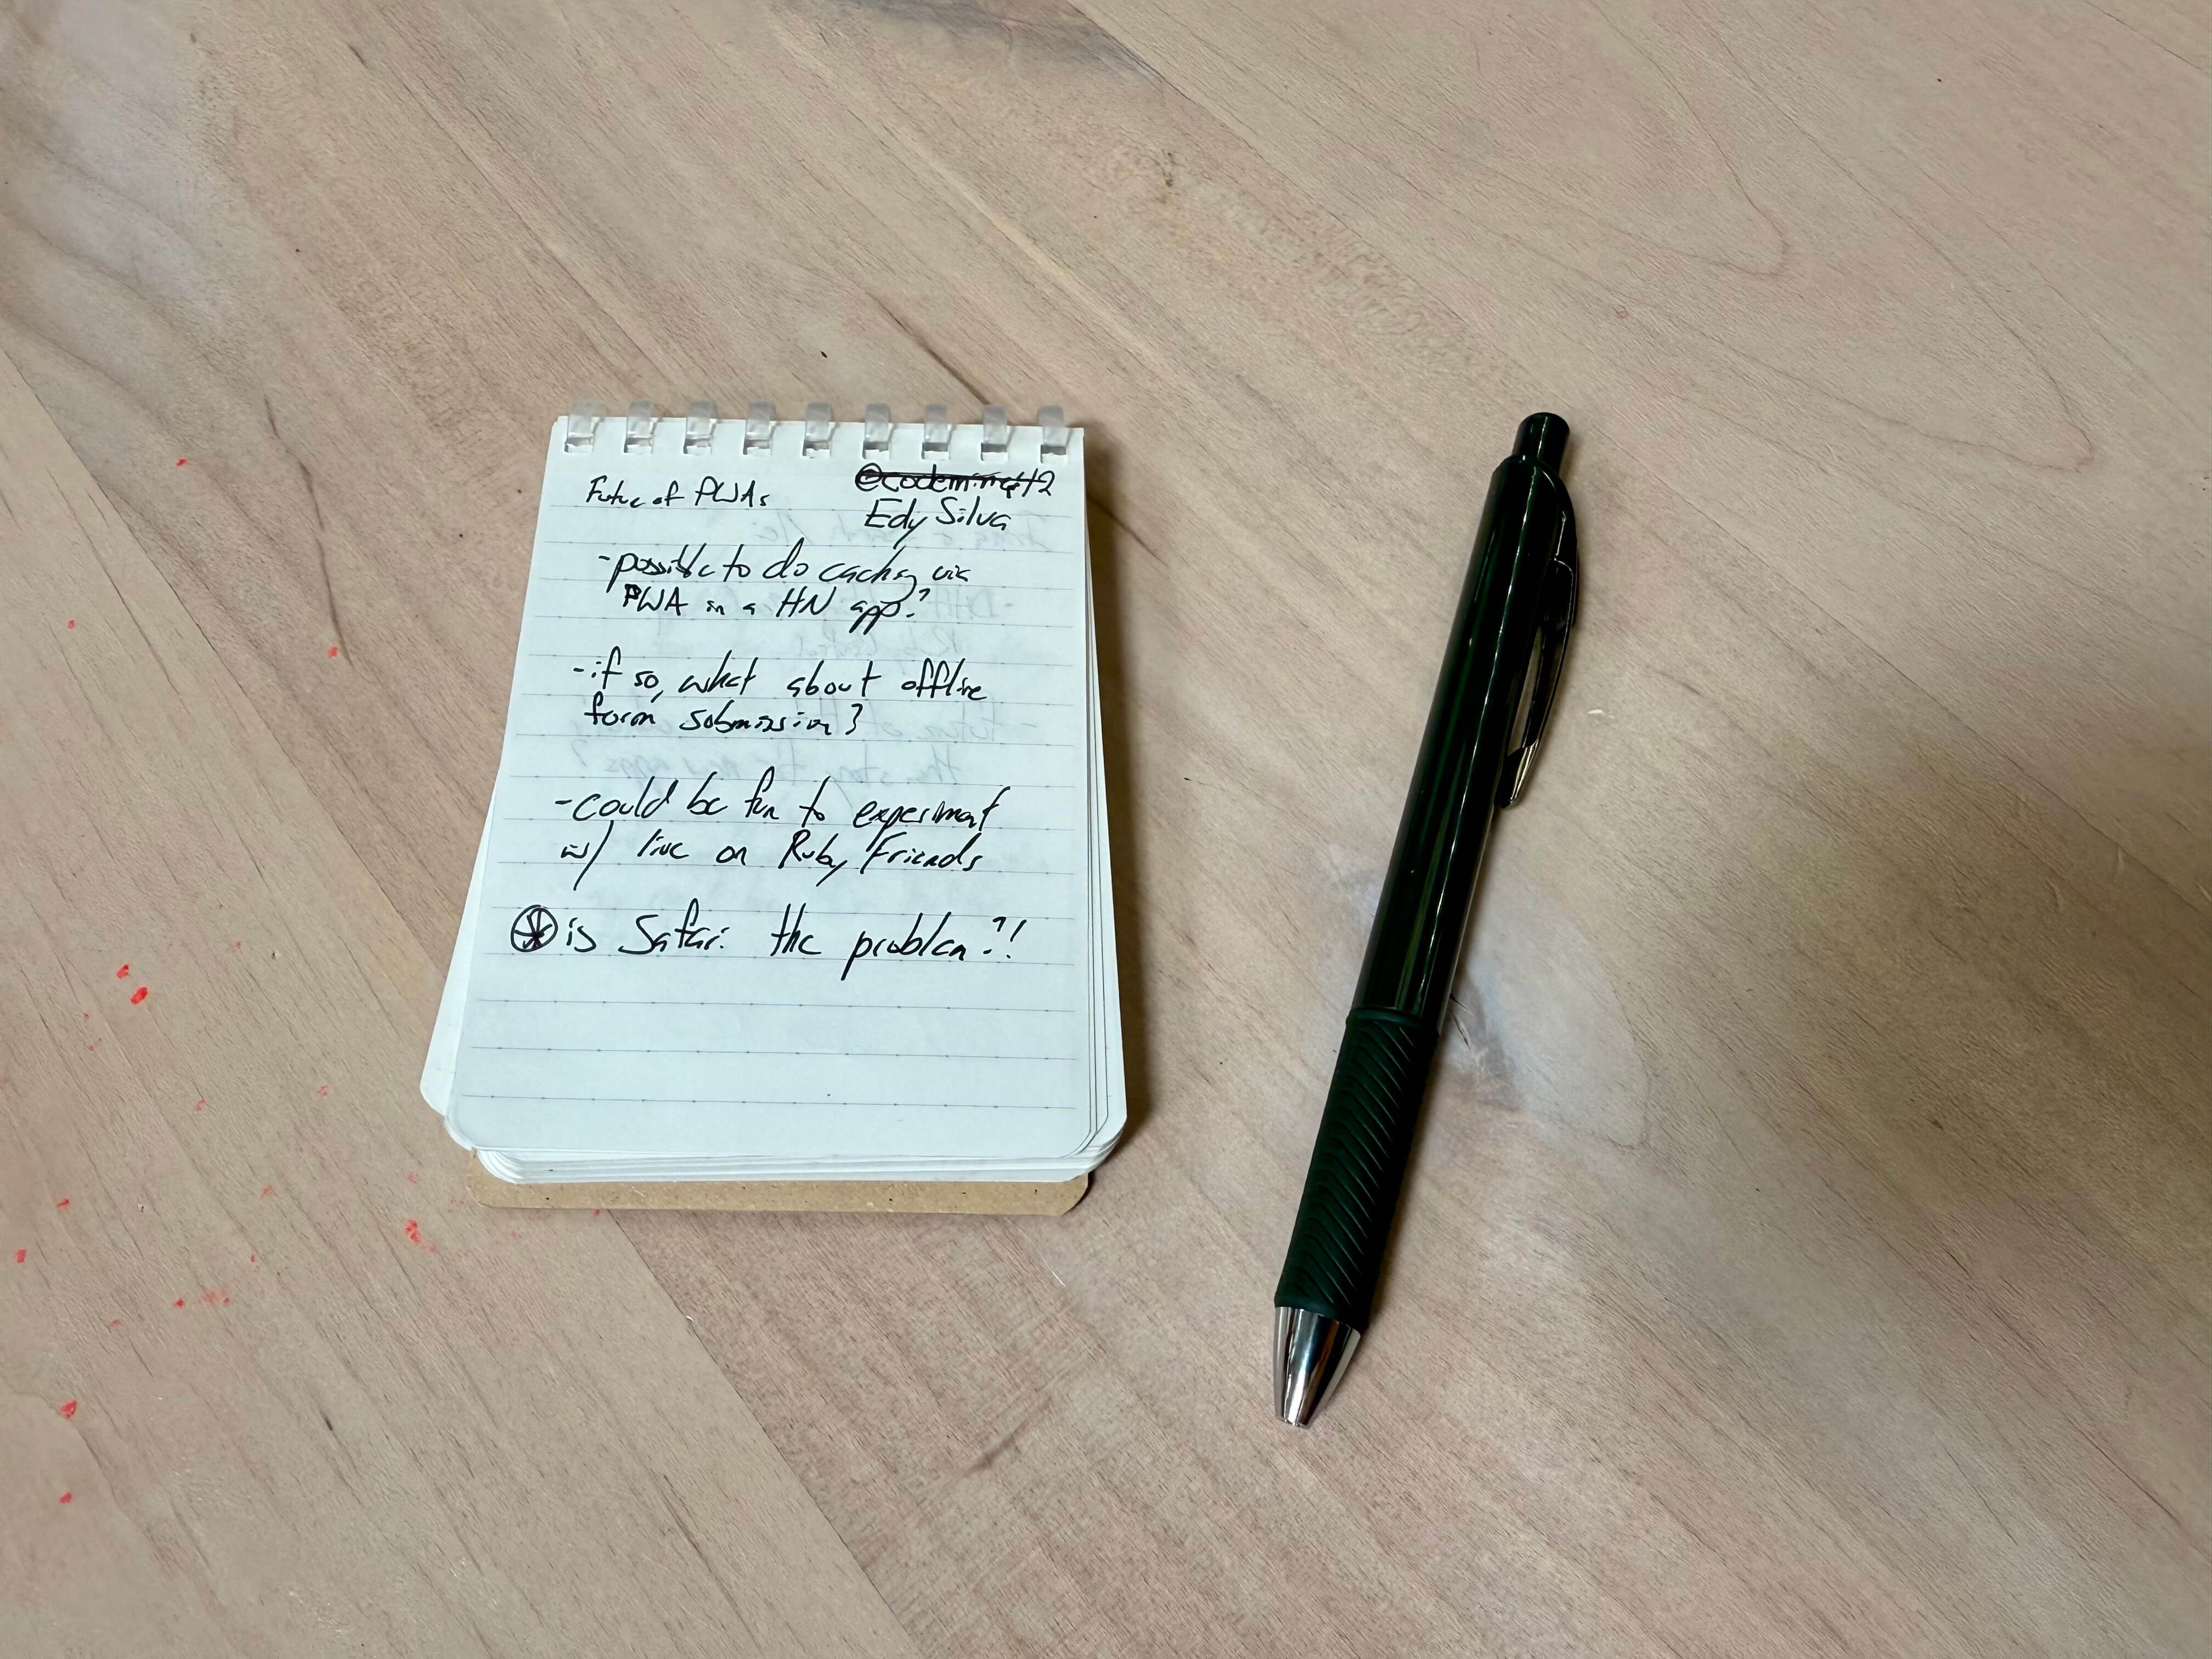 Future of PWAs
@codeminer42
Edy Silva
- possible to do caching via
PWA in a HN app?
- if so, what about offline
form submission?
- could be fun to experiment
w/ live on Ruby Friends
is Safari the problem?!